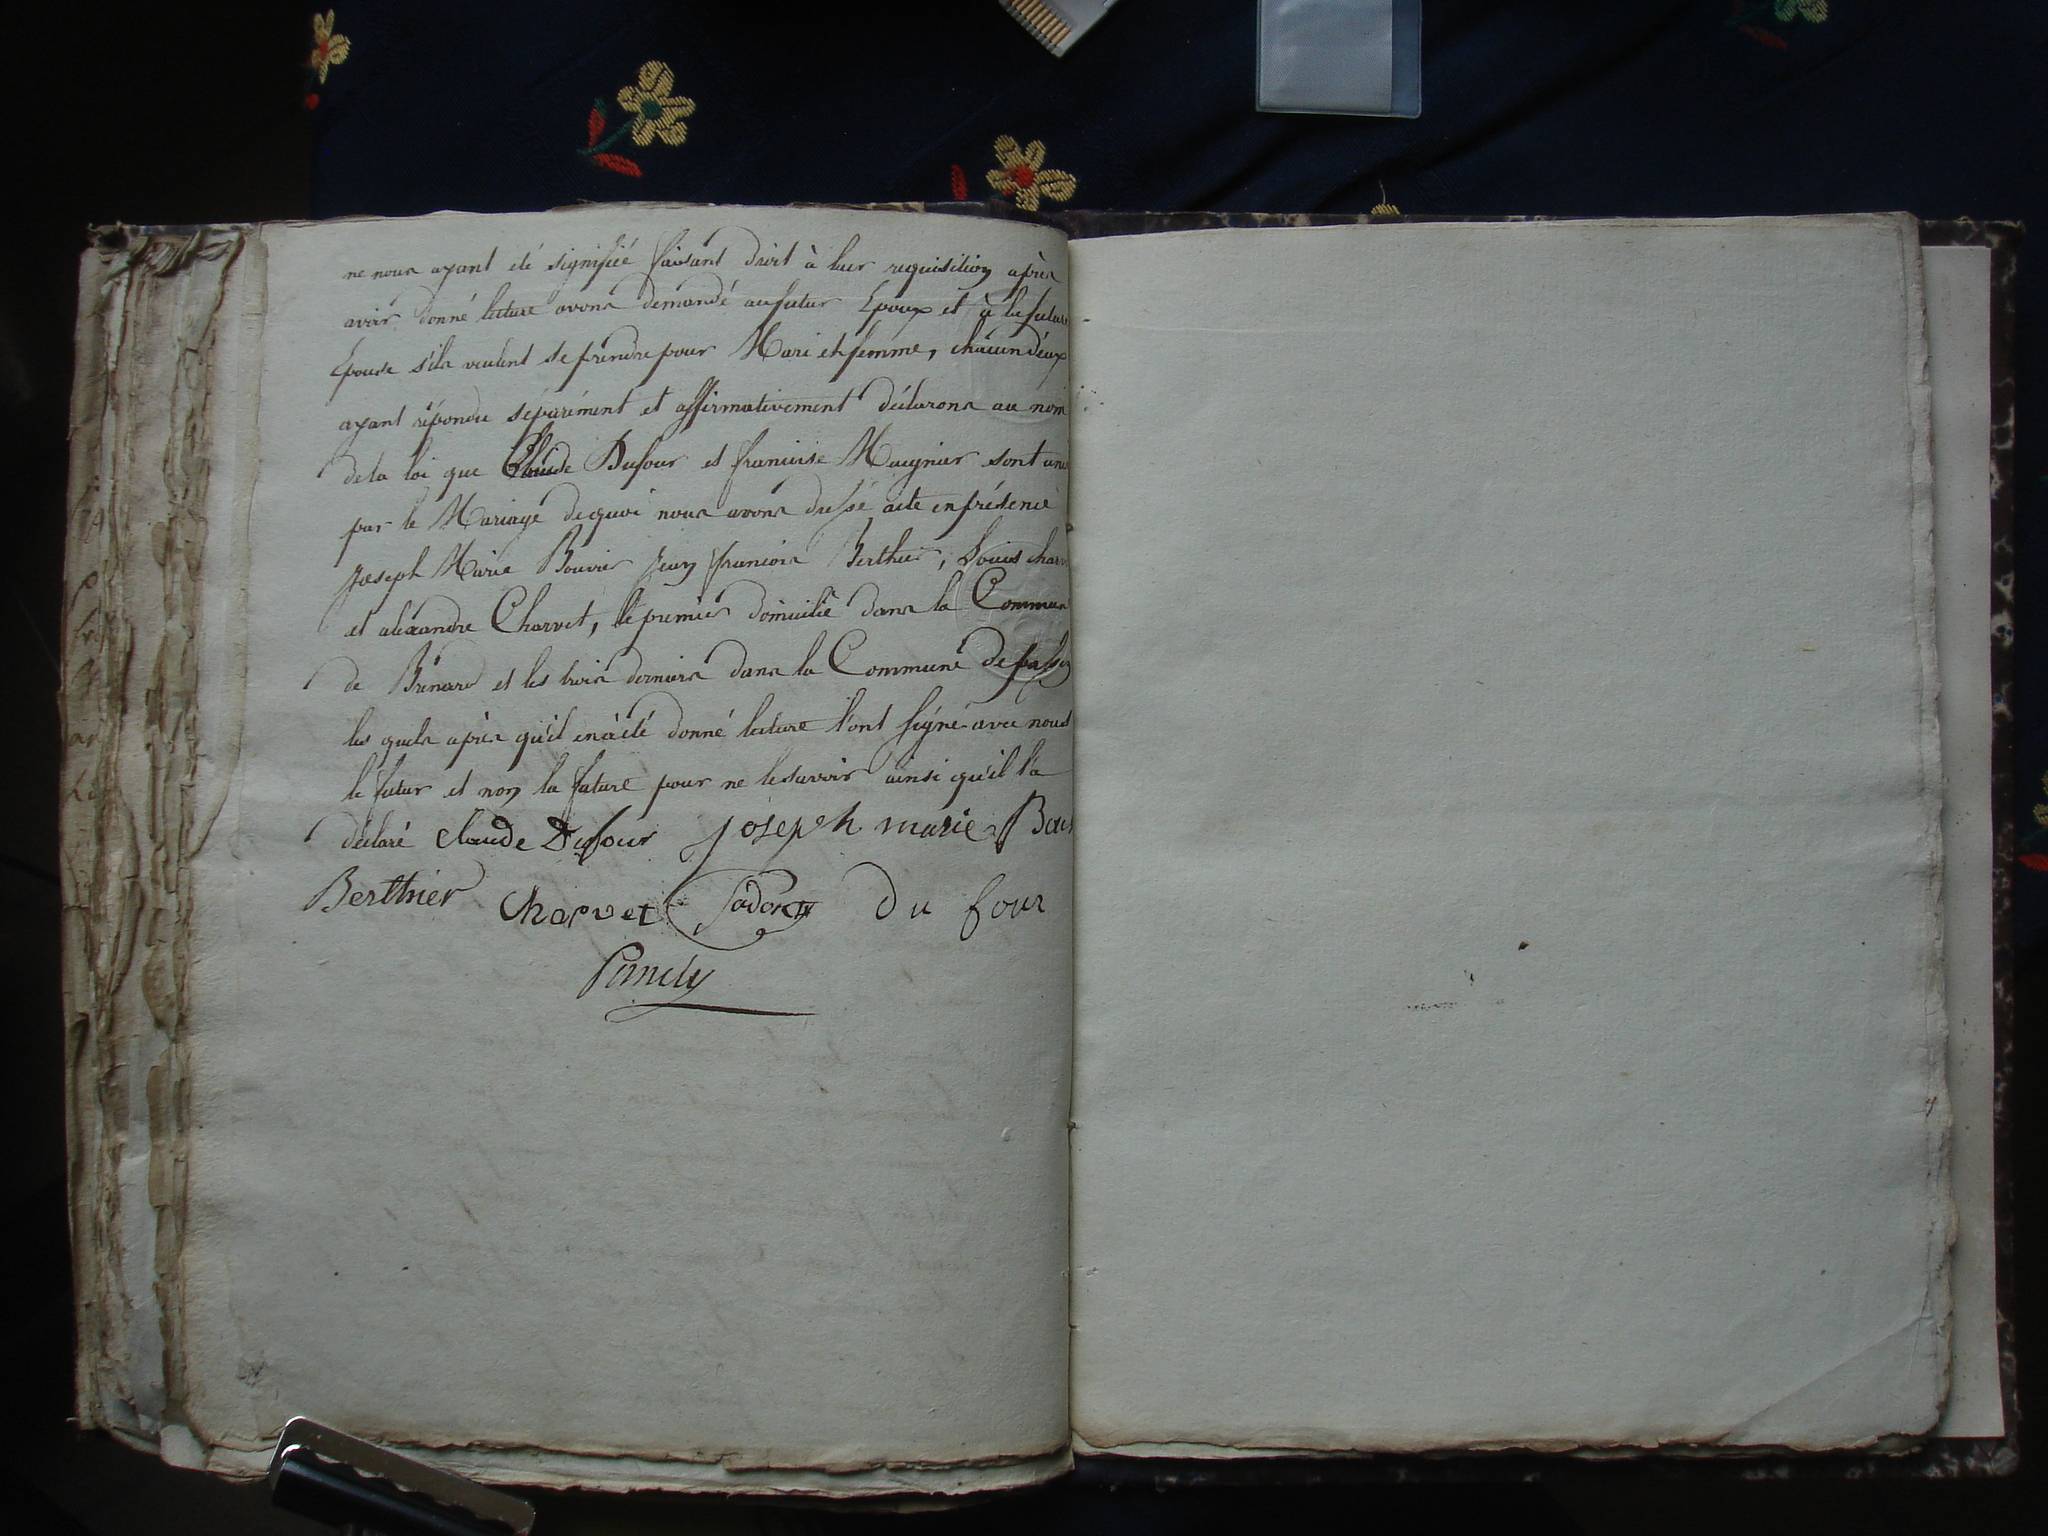 ne nous ayant été signifié faisant droit à leur requisition après
avoir donné lecture avons demandé au futur Epoux et à la future
Epouse s'ils veulent se prendre pour Mari et femme, chacun d'eux
ayant répondu séparément et affirmativement déclarons au nom
de la loi que Claude Dufour et francoise Maignier sont unis
par le Mariage de quoi nous avons dressé acte en présence
Joseph Marie Bouvier Jean françois Berthier, Louis Charv
et alexandre Charvet, le premier domicilié dans la Commune
de Brénard et les trois derniers dans la Commune de
les quels après qu'il en à été donné lecture l'ont signé avec nous
le futur et non la future pour ne le savoir ainsi qu'il l'a
déclaré Claude Dufour joseph marie Bou
Berthier Charvet du four